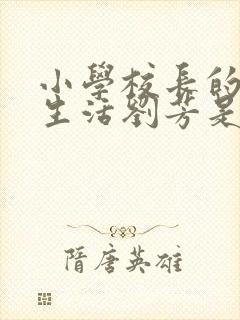 小學校長的
生活劉芳是
隋唐英雄